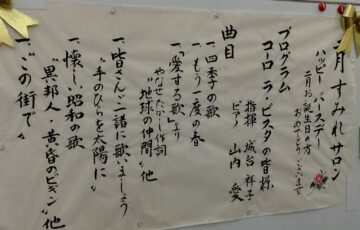 二月すみれサロン
ハッピーバースデー
二月お誕生日の方
おめでとうございます
プログラム
コーロ ラ・ビスタの皆様
指揮 城台 祥子
ピアノ 山内 愛
曲目
一、四季の歌
一、もう一度の春
一、“愛する歌”より
やなせたかし作詞
“地球の仲間”他
一、皆さんご一諸に歌いましょう
“手のひらを太陽に”
一、懐しい昭和の歌
“異邦人・黄昏のビギン”他
一、“この街で”